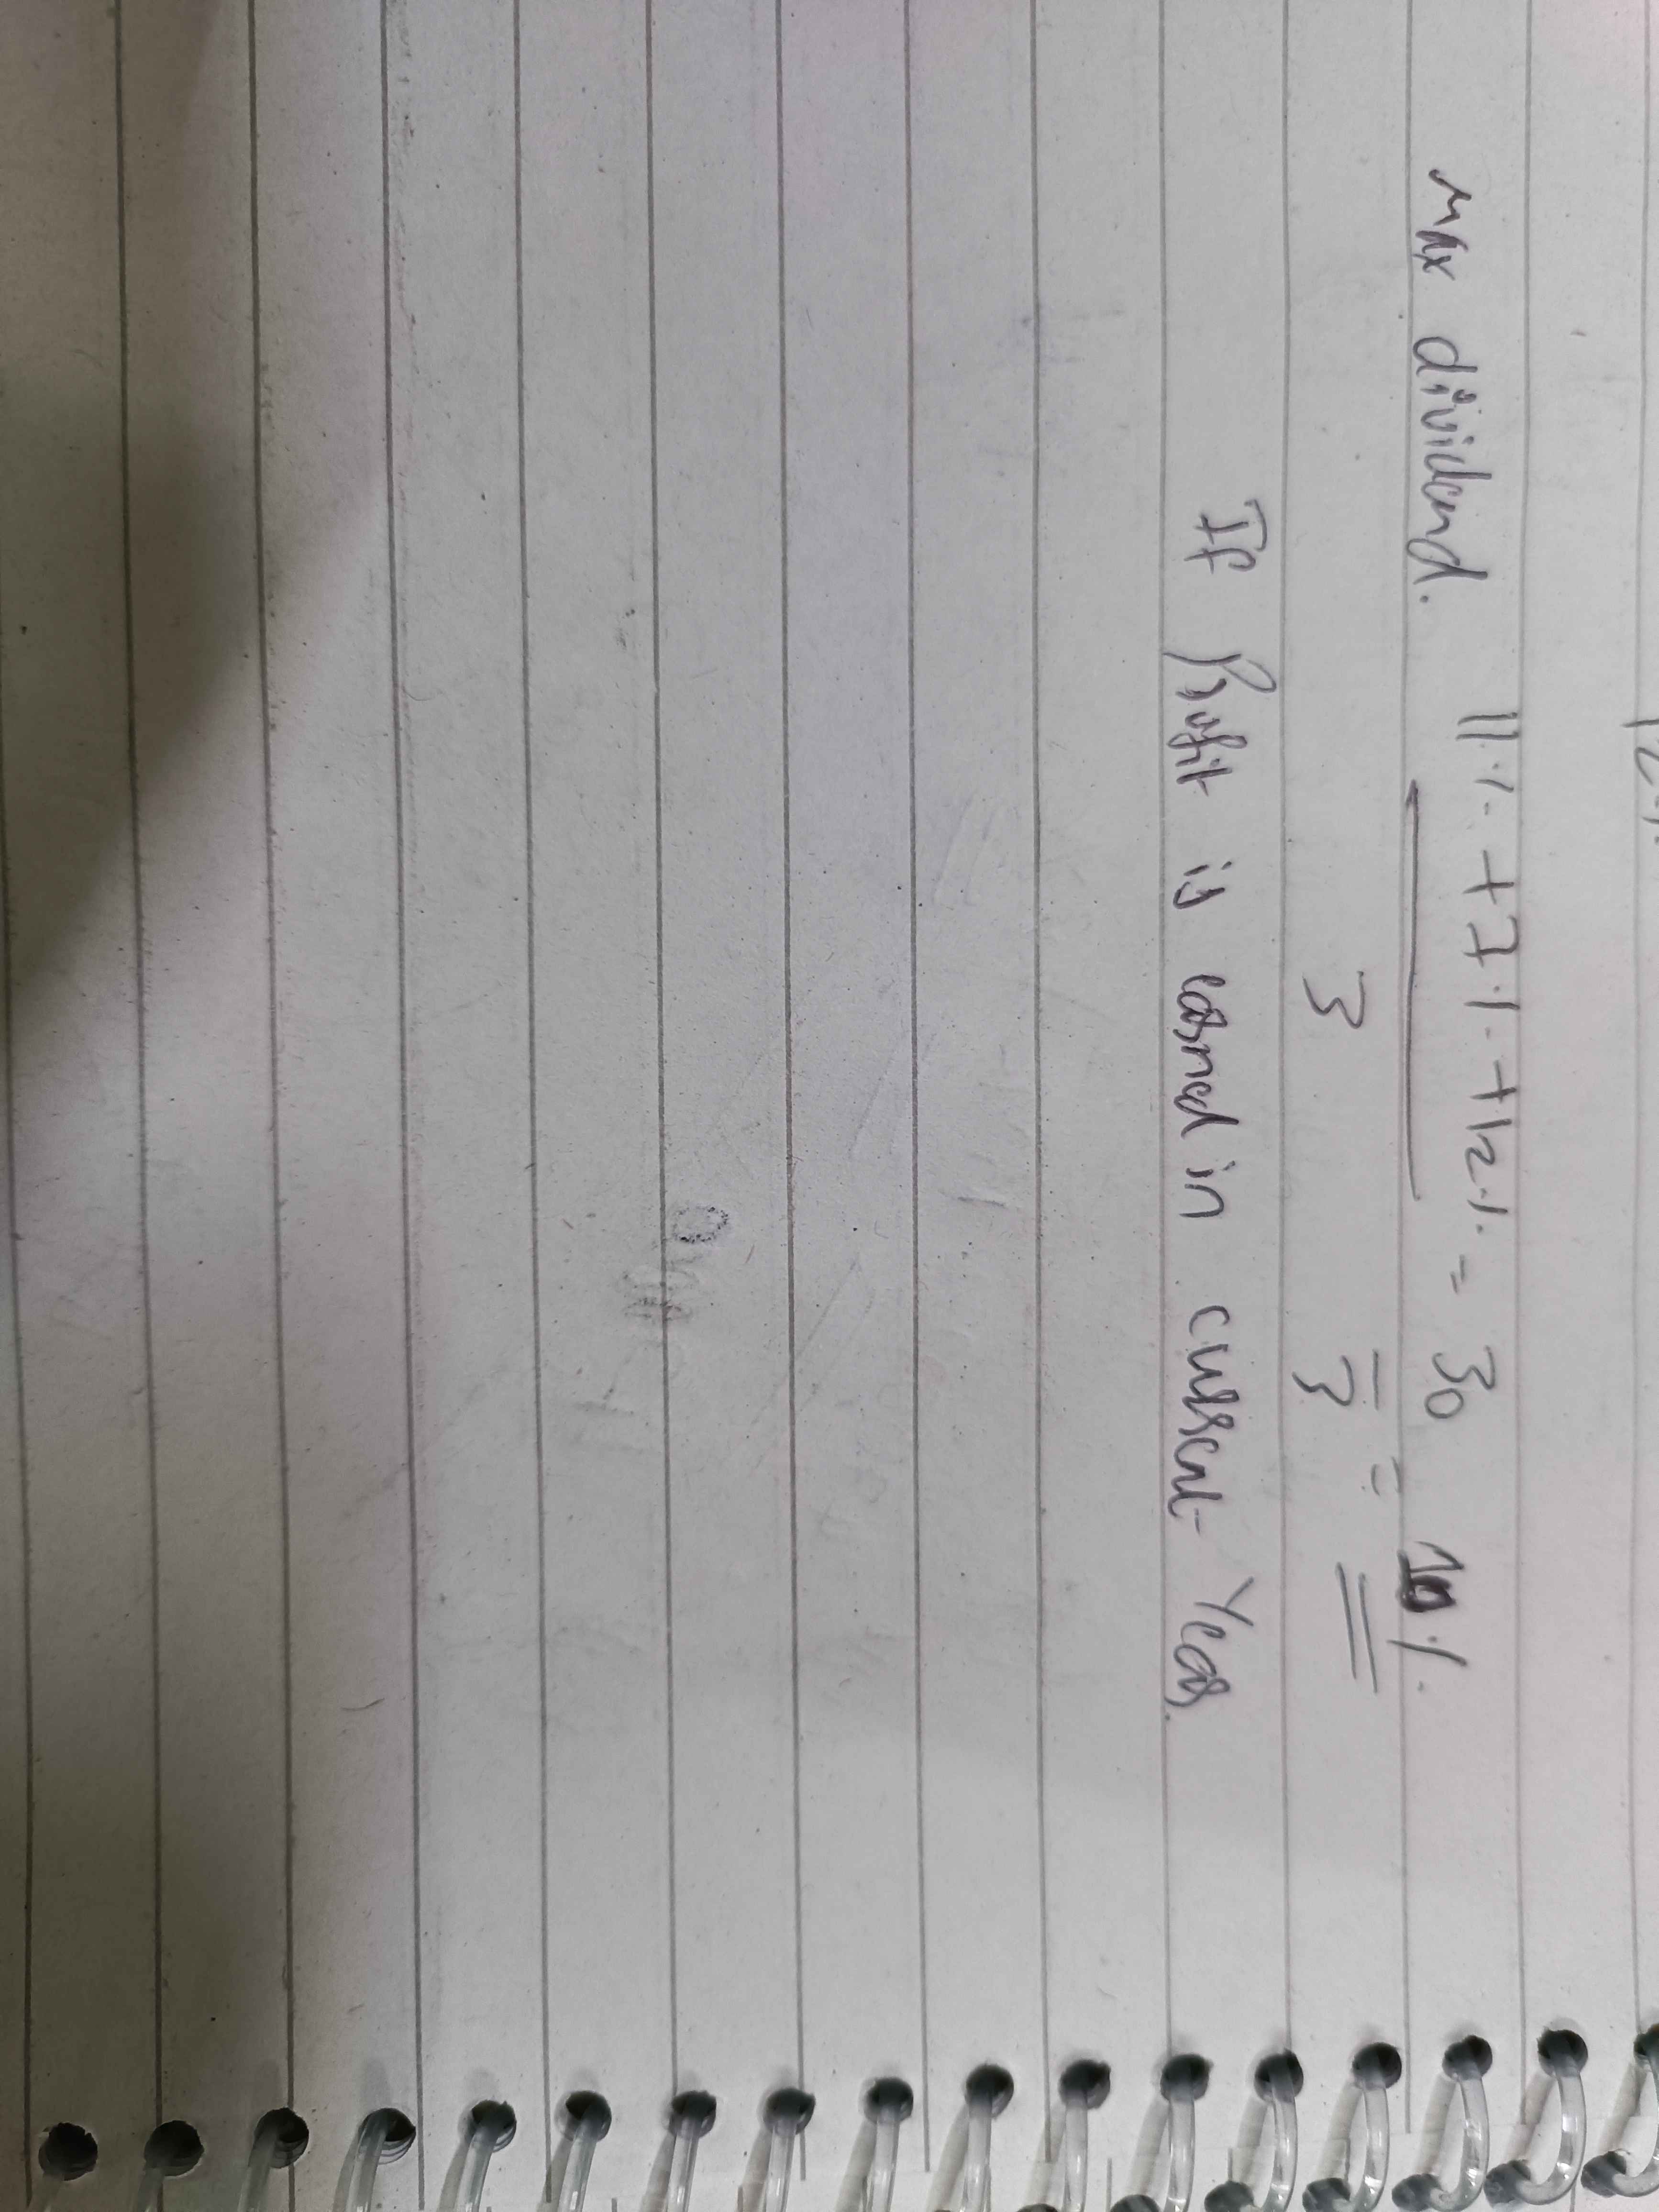 Max dividend. 11% + 7% + 12% = 30 = 10%
3 3
If Profit is earned in current Year.